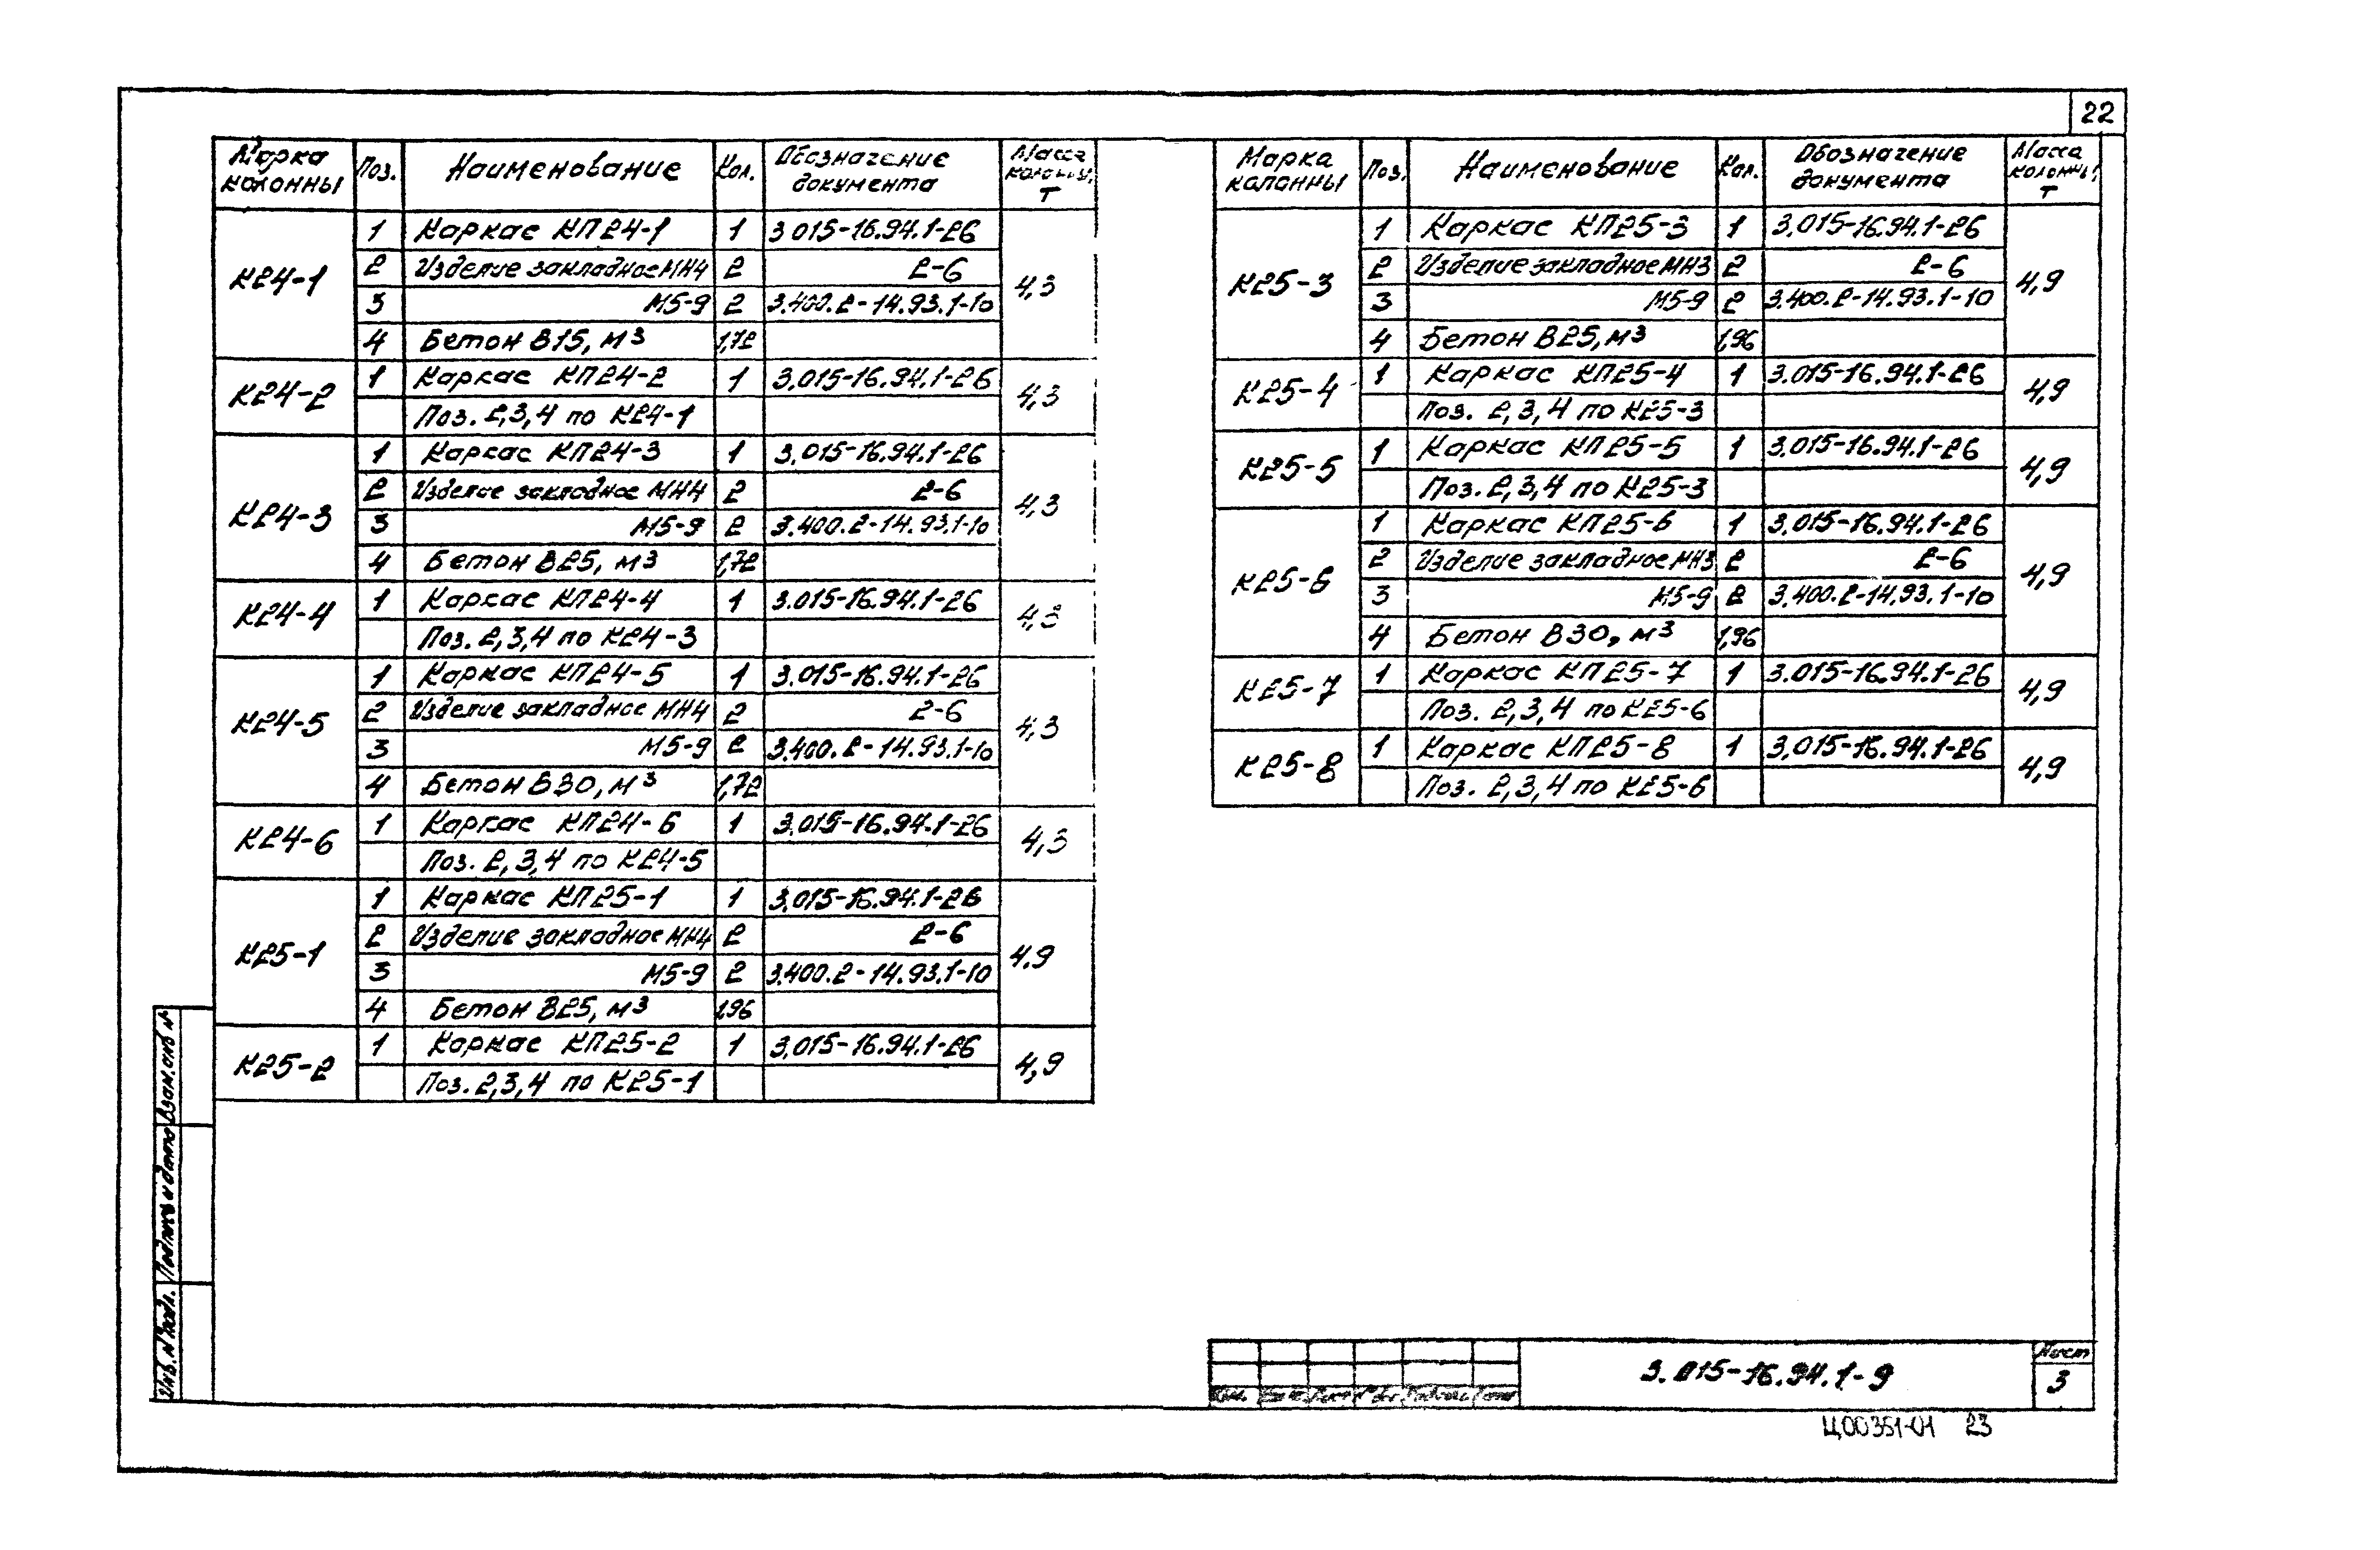 22
Марка колонны Поз. Наименование Кол. Обозначение документа Масса колонны, т
К24-1 1 Каркас КП24-1 1 3.015-16.94.1-26 4,3
2 Изделие закладное МН4 2 2-6
3 М5-9 2 3.400.2-14.93.1-10
4 Бетон В15, м3 1,72
К24-2 1 Каркас КП24-2 1 3.015-16.94.1-26 4,3
Поз. 2,3,4 по К24-1
К24-3 1 Каркас КП24-3 1 3.015-16.94.1-26 4,3
2 Изделие закладное МН4 2 2-6
3 М5-9 2 3.400.2-14.93.1-10
4 Бетон В25, м3 1,72
К24-4 1 Каркас КП24-4 1 3.015-16.94.1-26 4,3
Поз. 2,3,4 по К24-3
К24-5 1 Каркас КП24-5 1 3.015-16.94.1-26 4,3
2 Изделие закладное МН4 2 2-6
3 М5-9 2 3.400.2-14.93.1-10
4 Бетон В30, м3 1,72
К24-6 1 Каркас КП24-6 1 3.015-16.94.1-26 4,3
Поз. 2,3,4 по К24-5
К25-1 1 Каркас КП25-1 1 3.015-16.94.1-26 4.9
2 Изделие закладное МН4 2 2-6
3 М5-9 2 3.400.2-14.93.1-10
4 Бетон В25, м3 1,96
К25-2 1 Каркас КП25-2 1 3.015-16.94.1-26 4,9
Поз. 2,3,4 по К25-1
Марка колонны Поз. Наименование Кол. Обозначение документа Масса колонны, т
К25-3 1 Каркас КП25-3 1 3.015-16.94.1-26 4,9
2 Изделие закладное МН3 2 2-6
3 М5-9 2 3.400.2-14.93.1-10
4 Бетон В25, м3 1,96
К25-4 1 Каркас КП25-4 1 3.015-16.94.1-26 4,9
Поз. 2,3,4 по К25-3
К25-5 1 Каркас КП25-5 1 3.015-16.94.1-26 4,9
Поз. 2,3,4 по К25-3
К25-6 1 Каркас КП25-6 1 3.015-16.94.1-26 4,9
2 Изделие закладное МН3 2 2-6
3 М5-9 2 3.400.2-14.93.1-10
4 Бетон В30, м3 1,96
К25-7 1 Каркас КП25-7 1 3.015-16.94.1-26 4,9
Поз. 2,3,4 по К25-6
К25-8 1 Каркас КП25-8 1 3.015-16.94.1-26 4,9
Поз. 2,3,4 по К25-6
Взам. инв №
Подпись и дата
Инв. № подл.
3.015-16.94.1-9
Лист
3
Ц00351-01 23